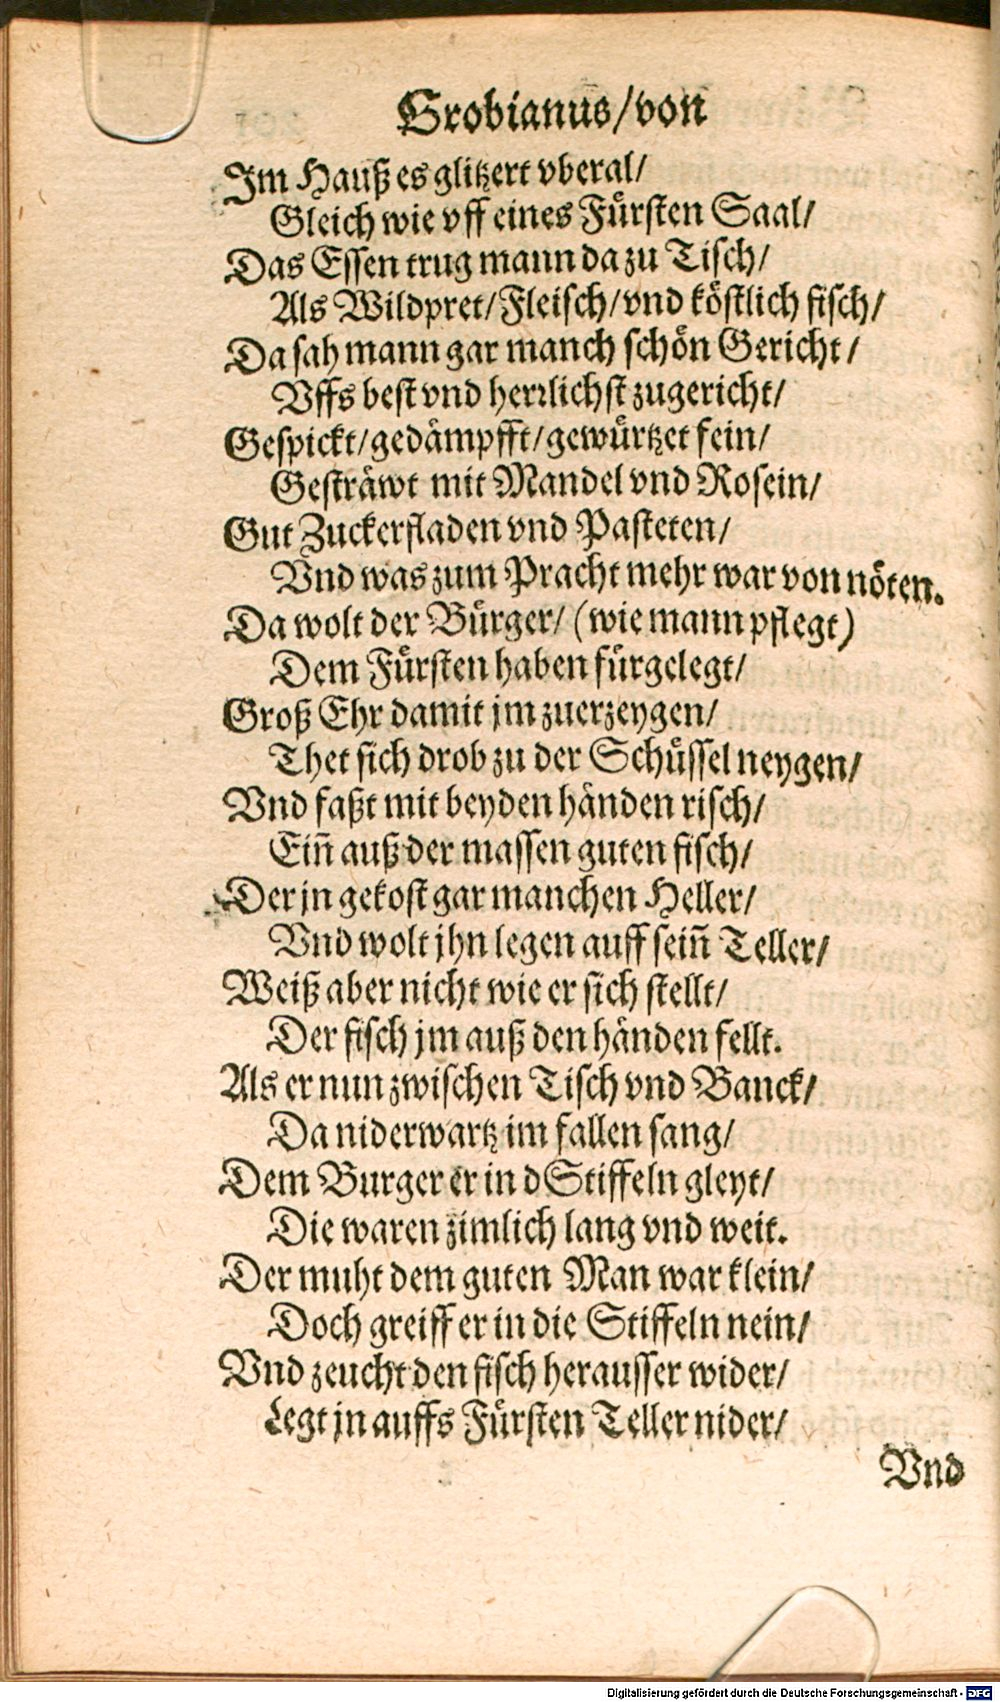 Grobianus/von
Im Hauß es glitzert vberal/
Gleich wie vff eines Fürsten Saal/
Das Essen trug mann da zu Tisch/
Als Wildpret/Fleisch/vnd köstlich fisch/
Da sah mann gar manch schön Gericht/
Vffs best vnd herrlichst zugericht/
Gespickt/gedämpfft/gewürtzet fein/
Gesträwt mit Mandel vnd Rosein/
Gut Zuckerfladen vnd Pasteten/
Vnd was zum Pracht mehr war von nöten.
Da wolt der Bürger/ (wie mann pflegt)
Dem Fürsten haben fürgelegt/
Groß Ehr damit jm zuerzeygen/
Thet sich drob zu der Schüssel neygen/
Vnd faßt mit beyden händen risch/
Ein̄ auß der massen guten fisch/
Der jn gekost gar manchen Heller/
Vnd wolt jhn legen auff sein̄ Teller/
Weiß aber nicht wie er sich stellt/
Der fisch jm auß den händen fellt.
Als er nun zwischen Tisch vnd Banck/
Da niderwartz im fallen sang/
Dem Burger er in d Stiffeln gleyt/
Die waren zimlich lang vnd weit.
Der muht dem guten Man war klein/
Doch greiff er in die Stiffeln nein/
Vnd zeucht den fisch herausser wider/
Legt jn auffs Fürsten Teller nider/
Vnd
Digitalisierung gefördert durch die Deutsche Forschungsgemeinschaft - DFG